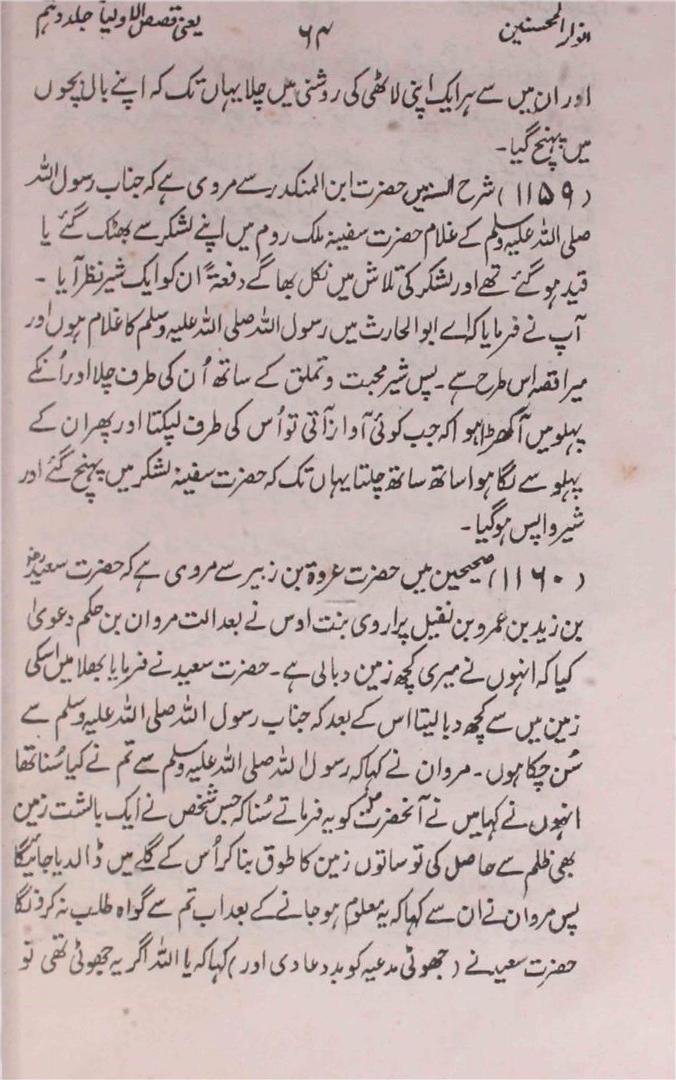 انوار المحسنین ۶۴ یعنی قصص الاولیا جلد دہم
اور ان میں سے ہر ایک اپنی لاٹھی کی روشنی میں چلا یہاں تک کہ اپنے بال بچوں
میں پہنچ گیا۔
(۱۱۵۹) شرح السنہ میں حضرت ابن المنکدر سے مروی ہے کہ جناب رسول اللہ
صلی اللہ علیہ وسلم کے غلام حضرت سفینہ ملک روم میں اپنے لشکر سے بھٹک گئے یا
قید ہو گئے تھے اور لشکر کی تلاش میں نکل بھاگے دفعۃً ان کو ایک شیر نظر آیا ۔
آپ نے فرمایا کہ اے ابو الحارث میں رسول اللہ صلی اللہ علیہ وسلم کا غلام ہوں اور
میرا قصہ اس طرح ہے۔ پس شیر محبت و تملق کے ساتھ اُن کی طرف چلا اور اُنکے
پہلو میں آ کھڑا ہوا کہ جب کوئی آواز آتی تو اُس کی طرف لپکتا اور پھر ان کے
پہلو سے لگا ہوا ساتھ ساتھ چلتا یہاں تک کہ حضرت سفینہ لشکر میں پہنچ گئے اور
شیر واپس ہو گیا۔
(۱۱۶۰) صحیحین میں حضرت عروۃ بن زبیر سے مروی ہے کہ حضرت سعیدؓ
بن زید بن عمرو بن نفیل پر اروی بنت اوس نے بعدالت مروان بن حکم دعویٰ
کیا کہ انہوں نے میری کچھ زمین دبا لی ہے۔ حضرت سعید نے فرمایا بھلا میں اسکی
زمین میں سے کچھ دبا لیتا اس کے بعد کہ جناب رسول اللہ صلی اللہ علیہ وسلم سے
سُن چکا ہوں۔ مروان نے کہا کہ رسول اللہ صلی اللہ علیہ وسلم سے تم نے کیا سُنا تھا
انہوں نے کہا میں نے آنحضرت صلعم کو یہ فرماتے سُنا کہ جس شخص نے ایک بالشت زمین
بھی ظلم سے حاصل کی تو ساتوں زمین کا طوق بنا کر اُس کے گلے میں ڈالدیا جائیگا
پس مروان نے ان سے کہا کہ یہ معلوم ہو جانے کے بعد اب تم سے گواہ طلب نہ کرونگا
حضرت سعید نے (جھوٹی مدعیہ کو بددعا دی اور) کہا کہ یا اللہ اگر یہ جھوٹی تھی تو